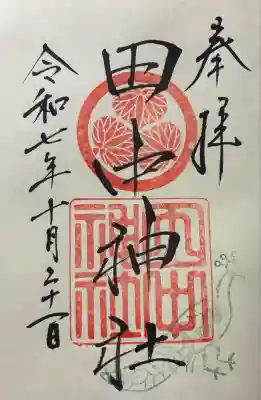 奉拝
田中神社
田中
神社
令和七年十月二十一日